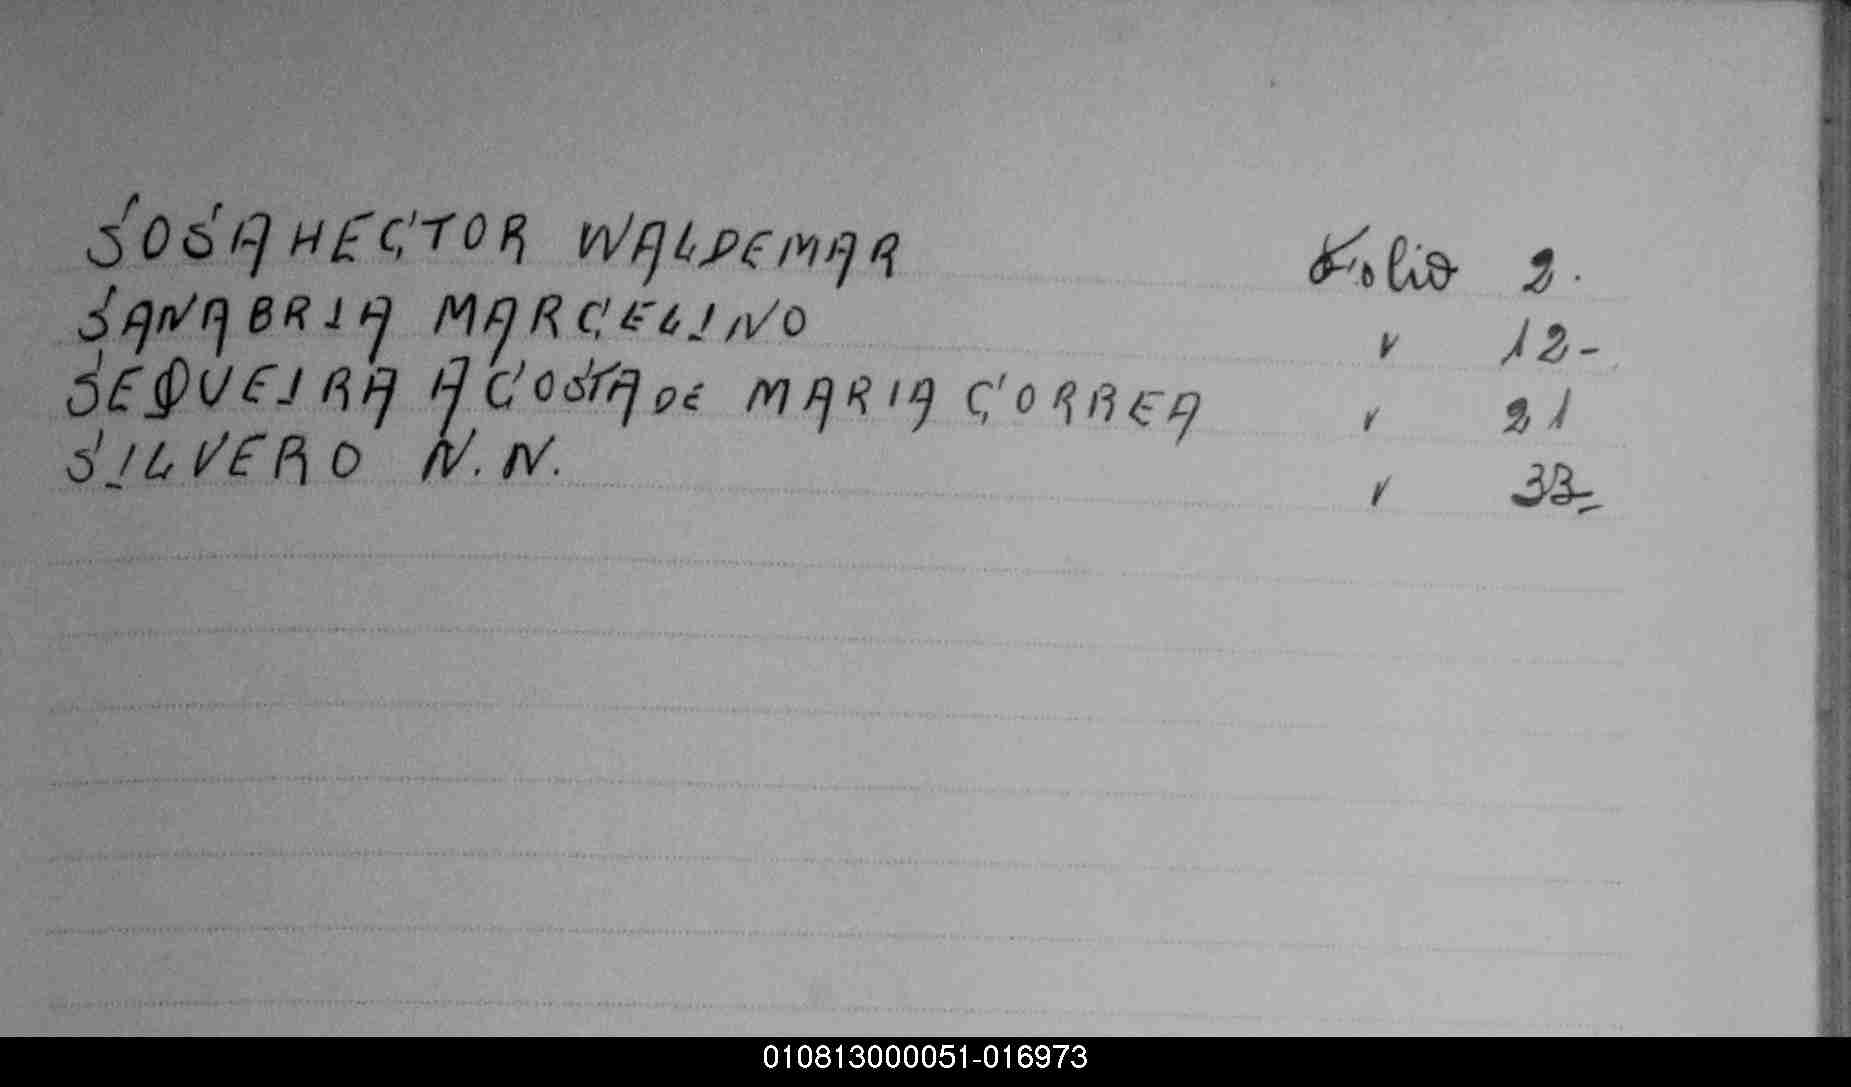 SOSA HECTOR WALDEMAR Folio 2.
SANABRIA MARCELINO " 12-
SEQUEIRA ACOSTA DE MARIA CORREA " 21
SILVERO N.N. " 33-
010813000051-016973